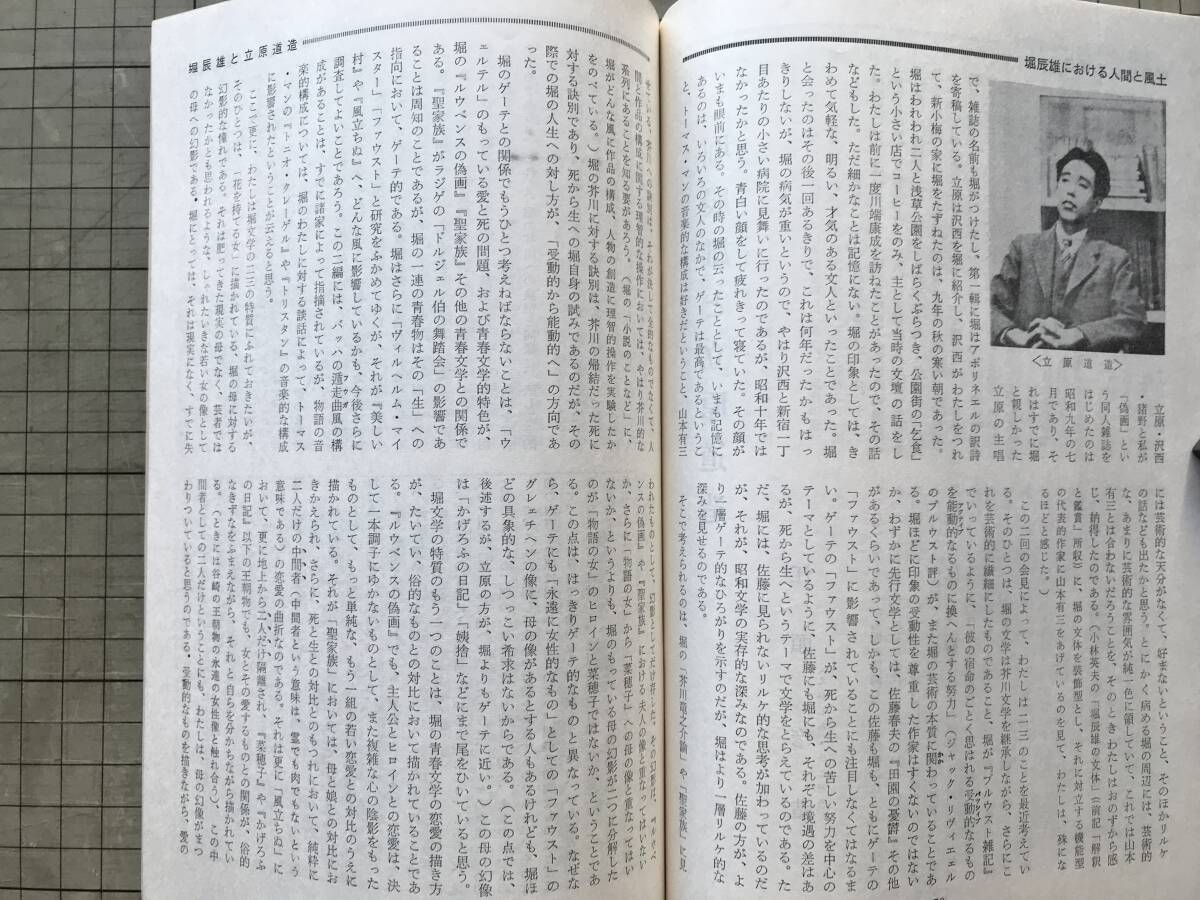 堀辰雄における人間と風土
＜立原道造＞
立原・沢西
・猪野と私が
「偽画」とい
う同人雑誌を
はじめたのは
昭和九年の七
月であり、そ
れはすでに堀
と親しかった
立原の主唱
で、雑誌の名前も堀がつけたし、第一輯に堀はアポリネエルの訳詩
を寄稿している。立原は沢西を堀に紹介し、沢西がわたしをつれ
て、新小梅の家に堀をたずねたのは、九年の秋の寒い朝であった。
堀はわれわれ二人と浅草公園をしばらくぶらつき、公園街の「乞食」
という小さい店でコーヒーをのみ、主として当時の文壇の話をし
た。わたしは前に一度川端康成を訪ねたことがあったので、その話
などもした。ただ細かなことは記憶にない。堀の印象としては、き
わめて気軽な、明るい、才気のある文人といったことであった。堀
と会ったのはその後一回あるきりで、これは何年だったかもはっ
きりしないが、堀の病気が重いというので、やはり沢西と新宿一丁
目あたりの小さい病院に見舞いに行ったのであるが、昭和十年では
なかったかと思う。青白い顔をして疲れきって寝ていた。その顔が
いまも眼前にある。その時の堀の云ったこととして、いまも記憶に
あるのは、いろいろの文人のなかで、ゲーテは最高であるというこ
と、トーマス・マンの音楽的な構成は好きだということ、山本有三
には芸術的な天分がなくて、好まないということ、そのほかリルケ
の話なども出たかと思う。とにかく病める堀の周辺には、芸術的
な、あまりに芸術的な雰囲気が純一色に領していて、これでは山本
有三とは合わないだろうことを、そのときわたしはおのずから感
じ、納得したのである。（小林英夫の「堀辰雄の文体」（前記「解釈
と鑑賞」所収）に、堀の文体を装飾型とし、それに対立する機能型
の代表的作家に山本有三をあげているのを見て、わたしは、殊にな
るほどと感じた。）
この二回の会見によって、わたしは二三のことを最近考えてい
る。そのひとつは、堀の文学は芥川文学を継承しながら、さらにこ
れを芸術的に繊細にしたものであること、堀が「プルウスト雑記」
でいっているように、「彼の宿命のごとく思はれる受動的なるもの
を能動的なるものに換へんとする努力」（ジャック・リヴィエエル
のプルウスト評）が、また堀の芸術の本質に関わっていることであ
る。堀ほどに印象の受動性を尊重した作家はすくないのではない
か、わずかに先行文学としては、佐藤春夫の『田園の憂鬱』その他
があるくらいであって、しかも、この佐藤も堀も、ともにゲーテの
「ファウスト」に影響されていることにも注目しなくてはなるま
い。ゲーテの「ファウスト」が、死から生への苦しい努力を中心の
テーマとしているように、佐藤にも堀にも、それぞれ境遇の差はあ
るが、死から生へというテーマで文学をとらえているのである。た
だ、堀には、佐藤に見られないリルケ的な思考が加わっているのだ
が、それが、昭和文学の実存的な深みなのである。佐藤の方が、よ
り一層ゲーテ的なひろがりを示すのだが、堀はより一層リルケ的な
深みを見せるのである。
そこで考えられるのは、堀の「芥川龍之介論」や「聖家族」に見
堀辰雄と立原道造
間と作品の構成に関する理智的な操作においては、やはり芥川的な
系列にあることを知る要があろう。（堀の「小説のことなど」に、
堀がどんな風に作品の構成、人物の創造に理智的操作を実験したか
をのべている。）堀の芥川に対する訣別は、芥川の帰結だった死に
対する訣別であり、死から生への堀自身の試みであるのだが、その
際での堀の人生への対し方が、「受動的から能動的へ」の方向であ
った。
堀のゲーテとの関係でもうひとつ考えねばならないことは、「ウ
ェルテル」のもっている愛と死の問題、および青春文学的特色が、
堀の『ルウベンスの偽画』『聖家族』その他の青春文学との関係で
ある。『聖家族』がラジゲの「ドルジェル伯の舞踏会」の影響であ
ることは周知のことであるが、堀の一連の青春物はその「生」への
指向において、ゲーテ的である。堀はさらに「ヴィルヘルム・マイ
スター」「ファウスト」と研究をふかめてゆくが、それが『美しい
村』や『風立ちぬ』へ、どんな風に影響しているかも、今後さらに
調査してよいことであろう。この二編には、バッハの遁走曲風の構
成があることは、すでに諸家によって指摘されているが、物語の音
楽的構成については、堀のわたしに対する談話によって、トーマス
・マンの『トニオ・クレーゲル』や『トリスタン』の音楽的な構成
に影響されたということが云えると思う。
ここで更に、わたしは堀文学の二三の特質にふれておきたいが、
そのひとつは、「花を持てる女」に描かれている、堀の母に対する
幻影的な憧れである。それは肥ってきた現実の母でなく、芸者では
なかったかとも思われるような、しゃれたいきな若い女の像として
の母への幻影である。堀にとっては、それは現実になく、すでに失
われたものとして、幻影としてだけ存した。その幻影は、『ルウベ
ンスの偽画』や『聖家族』における夫人の像と重なってはいない
か、さらに「物語の女」から「菜穂子」への母の像と重なってはい
ないか、というよりも、堀のもっている母の幻影が二つに分解した
のが「物語の女」のヒロインと菜穂子ではないか、ということであ
る。この点は、はっきりゲーテ的なものと異なっている。なぜな
ら、ゲーテにも「永遠に女性的なもの」としての「ファウスト」の
グレェチヘンの像に、母の像があるとする人もあるけれども、堀ほ
どの具象的な、しつっこい希求はないからである。（この点では、
後述するが、立原の方が、堀よりもゲーテに近い。）この母の幻像
は「かげろふの日記」「姨捨」などにまで尾をひいていると思う。
堀文学の特質のもう一つのことは、堀の青春文学の恋愛の描き方
が、たいてい、俗的なものとの対比において描かれていることであ
る。『ルウベンスの偽画』でも、主人公とヒロインとの恋愛は、決
して一本調子にゆかないものとして、また複雑な心の陰影をもった
ものとして、もっと単純な、もう一組の若い恋愛との対比のうえに
描かれている。それが「聖家族」においては、母と娘との対比にお
きかえられ、さらに、死と生との対比とのもつれにおいて、純粋に
二人だけの中間者（中間者という意味は、霊でも肉でもないという
意味である）の恋愛の曲折なのである。それは更に「風立ちぬ」に
おいて、更に地上から二人だけ隔離され、『菜穂子』や『かげろふ
の日記』以下の王朝物でも、女とその愛するものとの関係が、俗的
なきずなをふまえながら、それと自らを分かちながら描かれてい
る。（ときには谷崎の王朝物の永遠の女性像と触れ合う）、この中
間者としての二人だけということにも、わたしは、母の幻像がまつ
わりついていると思うのである。受動的なものを描きながら、愛の